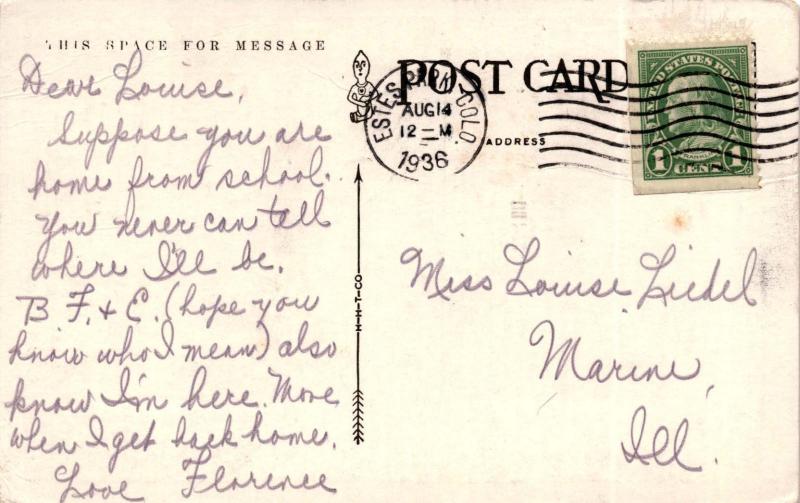 THIS SPACE FOR MESSAGE
Dear Louise,
Suppose you are
home from school.
You never can tell
where I'll be.
B F. & E. (hope you
know who I mean) also
know I'm here. More
when I get back home.
Love Florence
H-H-T-CO
POST CARD
ESTES PARK COLO.
AUG 14
12 - M
1936
ADDRESS
UNITED STATES POSTAGE
FRANKLIN
1 CENT 1
Miss Louise Liedel
Marine,
Ill.